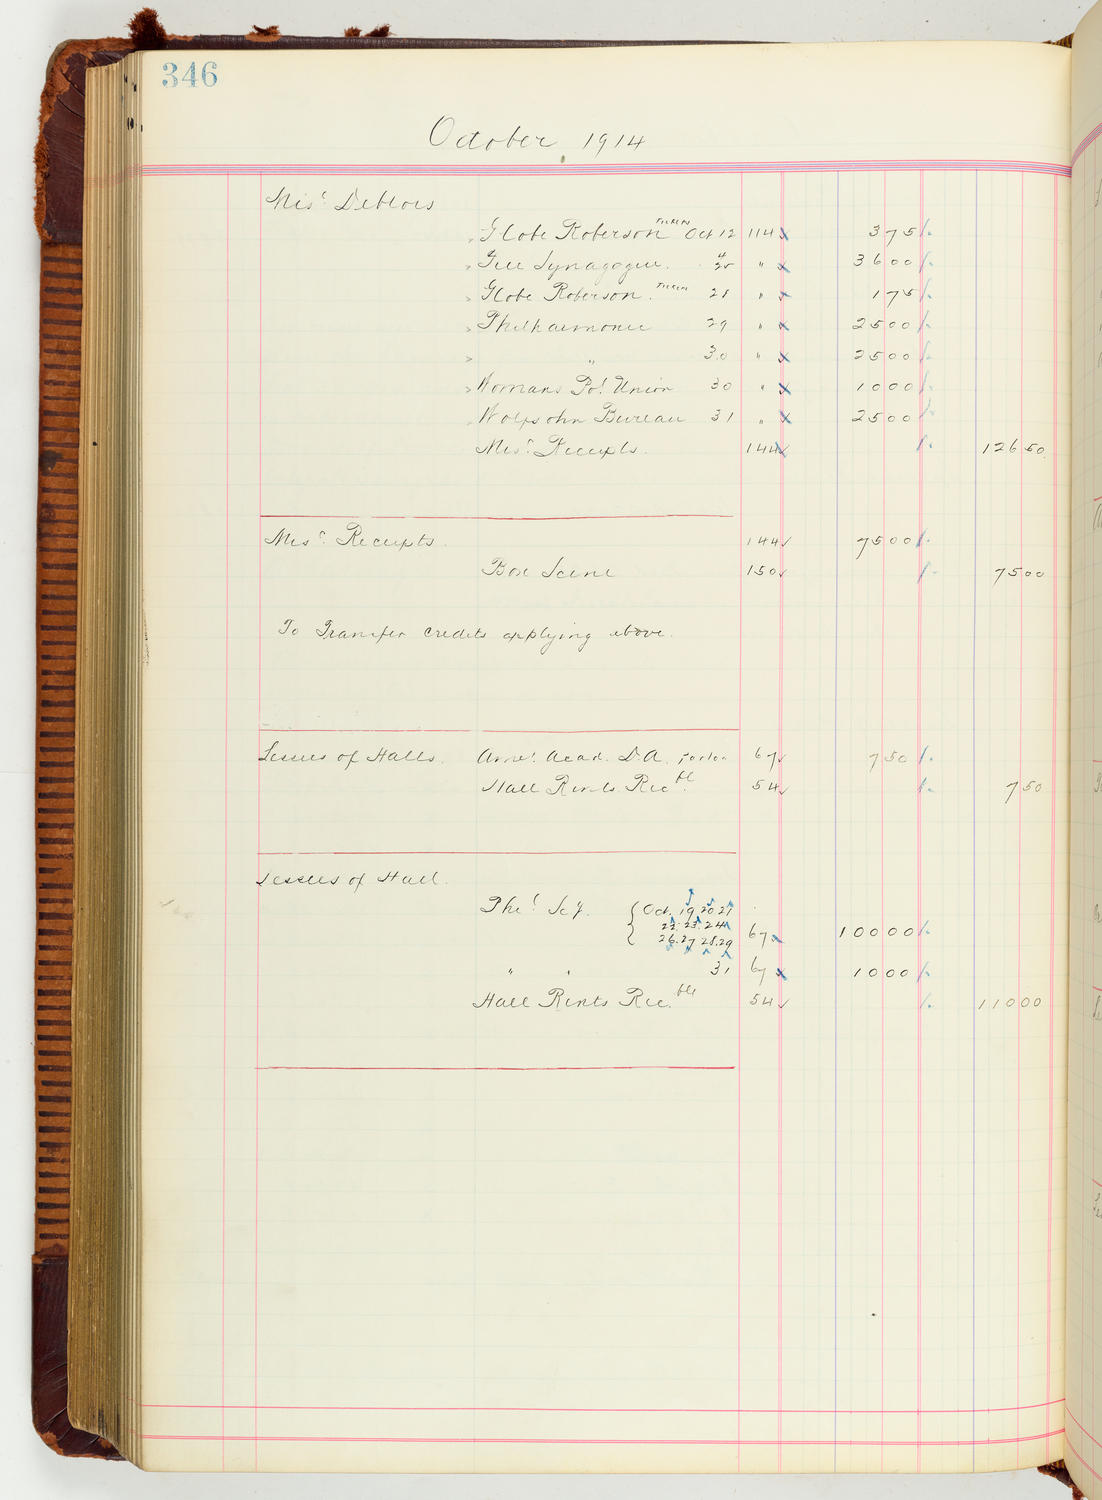 346
October 1914
Misc. Debtors
Globe Roberson Tickets Oct 12 114 3 75
Free Synagogue 4 25 " 36 00
Globe Roberson Tickets 28 " 1 75
Philharmonic 29 " 25 00
" 30 " 25 00
Womans Pol. Union 30 " 10 00
Wolfsohn Bureau 31 " 25 00
Misc. Receipts. 144 126 50
Misc. Receipts 144 75 00
Box Scene 150 75 00
To Transfer credits applying above.
Lessees of Halls. Amer. Acad. D.A. 67 7 50
Hall Rents Recble 54 7 50
Lessees of Hall.
Phil. Scy. { Oct. 19 20 21
22 23 24 67 100 00
26 27 28 29
" " 31 67 10 00
Hall Rents Rec.ble 54 110 00